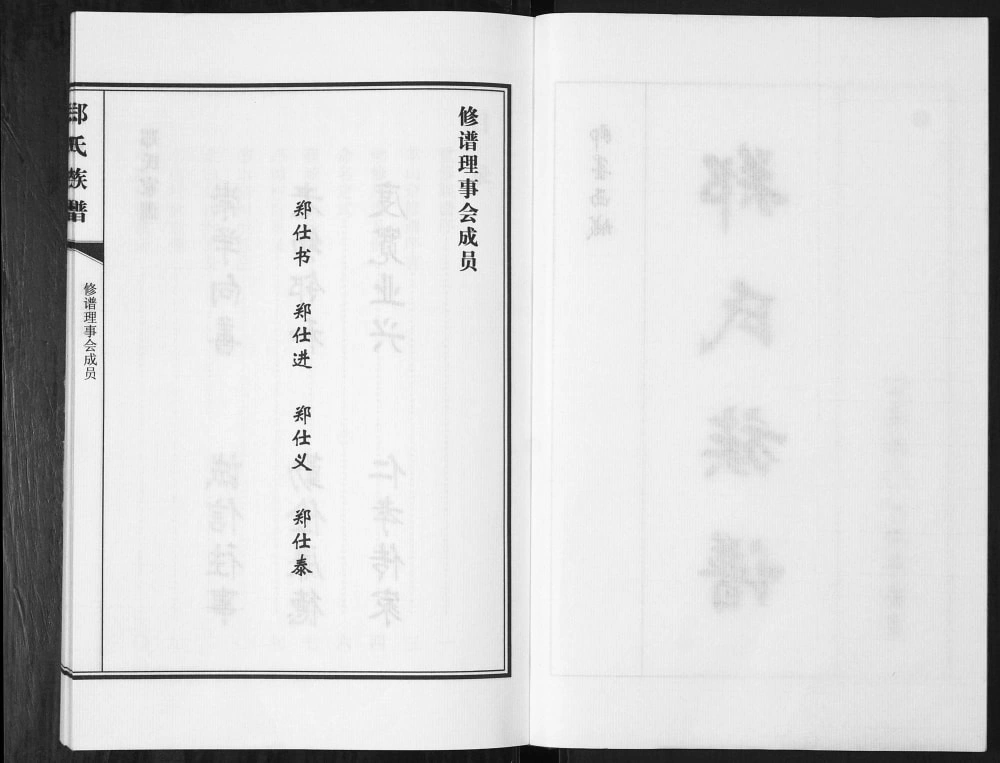 修谱理事会成员
郑仕书 郑仕进 郑仕义 郑仕泰
郑氏族谱
修谱理事会成员